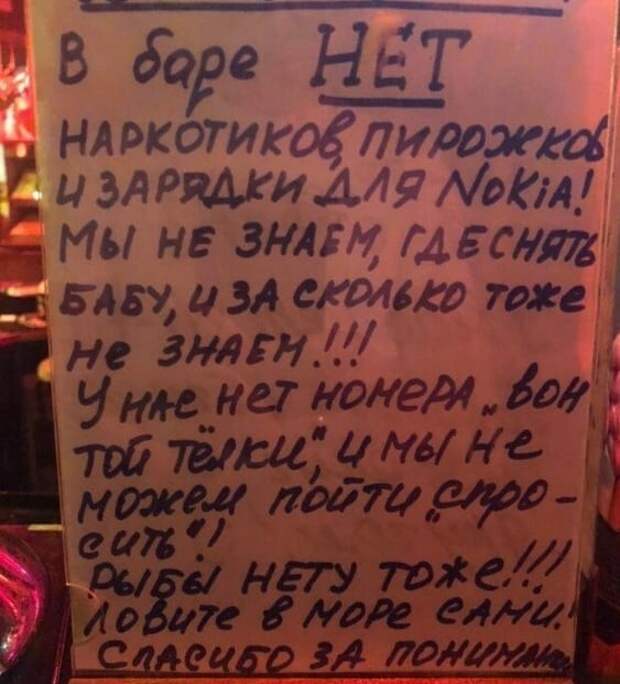 В баре НЕТ
НАРКОТИКОВ, ПИРОЖКОВ
И ЗАРЯДКИ ДЛЯ NOKiA!
МЫ НЕ ЗНАЕМ, ГДЕ СНЯТЬ
БАБУ, И ЗА СКОЛЬКО ТОЖЕ
НЕ ЗНАЕМ!!!
У НАС НЕТ НОМЕРА „ВОН
ТОЙ ТЁЛКИ“, И МЫ НЕ
МОЖЕМ ПОЙТИ „СПРО-
СИТЬ“!
РЫБЫ НЕТУ ТОЖЕ!!!
ЛОВИТЕ В МОРЕ САМИ!
СПАСИБО ЗА